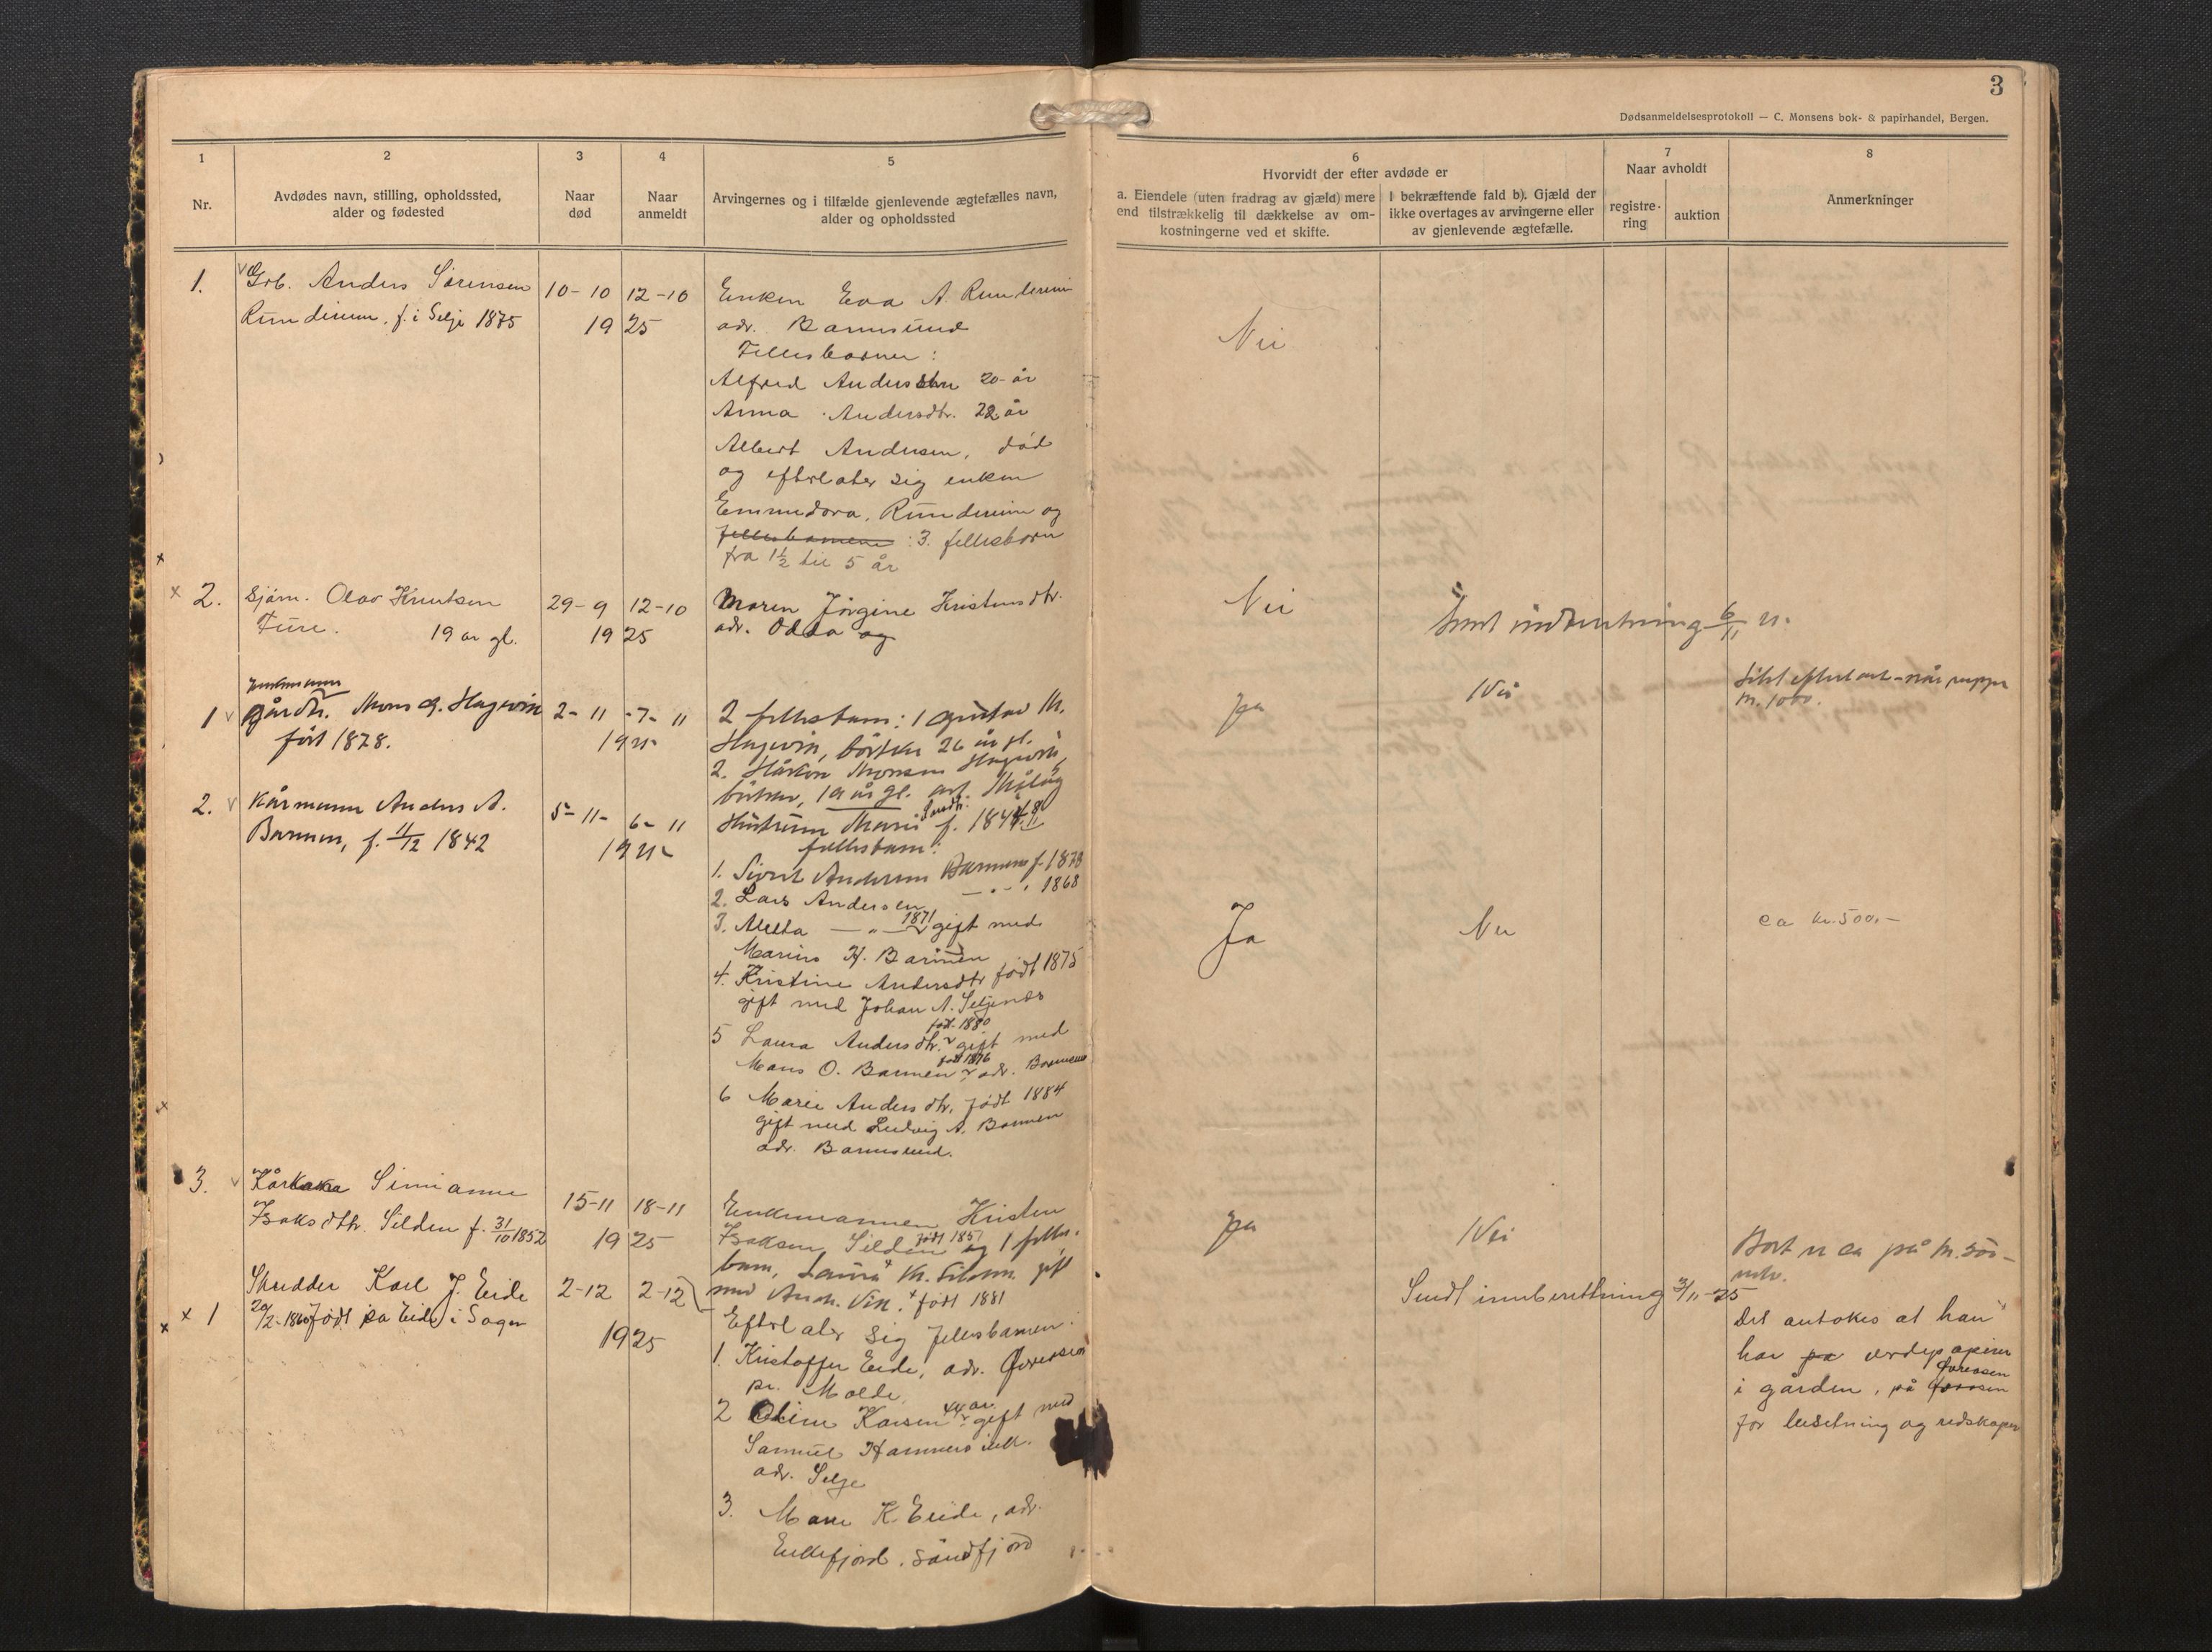 3
Dødsanmeldelsesprotokoll — C. Monsens bok- & papirhandel, Bergen.
1
2
3
4
5
6
7
8
Nr.
Avdødes navn, stilling, opholdssted,
alder og fødested
Naar
død
Naar
anmeldt
Arvingernes og i tilfælde gjenlevende ægtefælles navn,
alder og opholdssted
Hvorvidt der efter avdøde er
a. Eiendele (uten fradrag av gjæld) mere
end tilstrækkelig til dækkelse av om-
kostningerne ved et skifte.
I bekræftende fald b). Gjæld der
ikke overtages av arvingerne eller
av gjenlevende ægtefælle.
Naar avholdt
registre-
ring
auktion
Anmerkninger
1. Grb. Anders Sørensen
Rundereim, f. i Selje 1875
10-10 12-10
1925
Enken Eva A. Rundereim
adr. Barmsund
Fellesbarna:
Alfred Anderssen 20 år
Anna Andersdtr. 22 år
Albert Andersen, død
og efterlater sig enken
Emmedora, Rundereim og
fellesbarnene : 3. fellesborn
fra 1½ til 5 år
Nei
x 2. Sjøm. Olav Knutsen
Ture. 19 år gl.
29-9 12-10
1925
Maren Jørgine Kristensdtr.
adr. Odda og
Nei
Sendt indberetning 6/11 25
1 gårdbr. Mons G. Hagevik
født 1878.
2-11 -7-11
1925
2 fellesbarn: 1 Gustav M.
Hagevik, 26 år gl.
2. Håkon Monsen Hagevik,
19 år gl. adr. Måløy
Ja
Nei
kr. 1000.
2. Kårmann Anders A.
Barmen, f. 11/12 1842
5-11- 6-11
1925
Hustruen Marie f. 1844
fellesbarn:
1. Sivert Andersen Barmen f. 1873
2. Lars Andersen — " — 1868
3. Aletta — " — 1871 gift med
Marius H. Barmen
4. Kristine Andersdtr født 1875
gift med Johan A. Seljenes
5 Laura Andersdtr. født 1880 gift med
Mons O. Barmen født 1876 adr. Barmen
6 Marie Andersdtr. født 1884
gift med Ludvig A. Barmen
adr. Barmsund.
Ja
Nei
ca kr. 500.-
3. Kårkona Simianne
Isaksdtr. Silden f. 31/10 1852
15-11 18-11
1925
Enkemannen Kristen
Isaksen Silden født 1857 og 1 felles-
barn, Laura Kr. Silden gift
med Andr. Vik. født 1881
Ja
Nei
Boet er ca på kr. 500-
x 1 Skredder Karl J. Eide
20/2-1860 født på Eide i Sogn
2-12 2-12
1925
Efterlater sig fellesbarnen.
1. Kristoffer Eide, adr.
pr. Molde.
2 Oline Karsen 44 år gift med
Samuel Hammersvik.
adr. Selje
3. Mare K. Eide, adr.
Eikefjord. Søndfjord
Sendt innberettning 3/11-25
Det antokes at han
har på verdipapirer
i gården, på
for besetning og redskaper